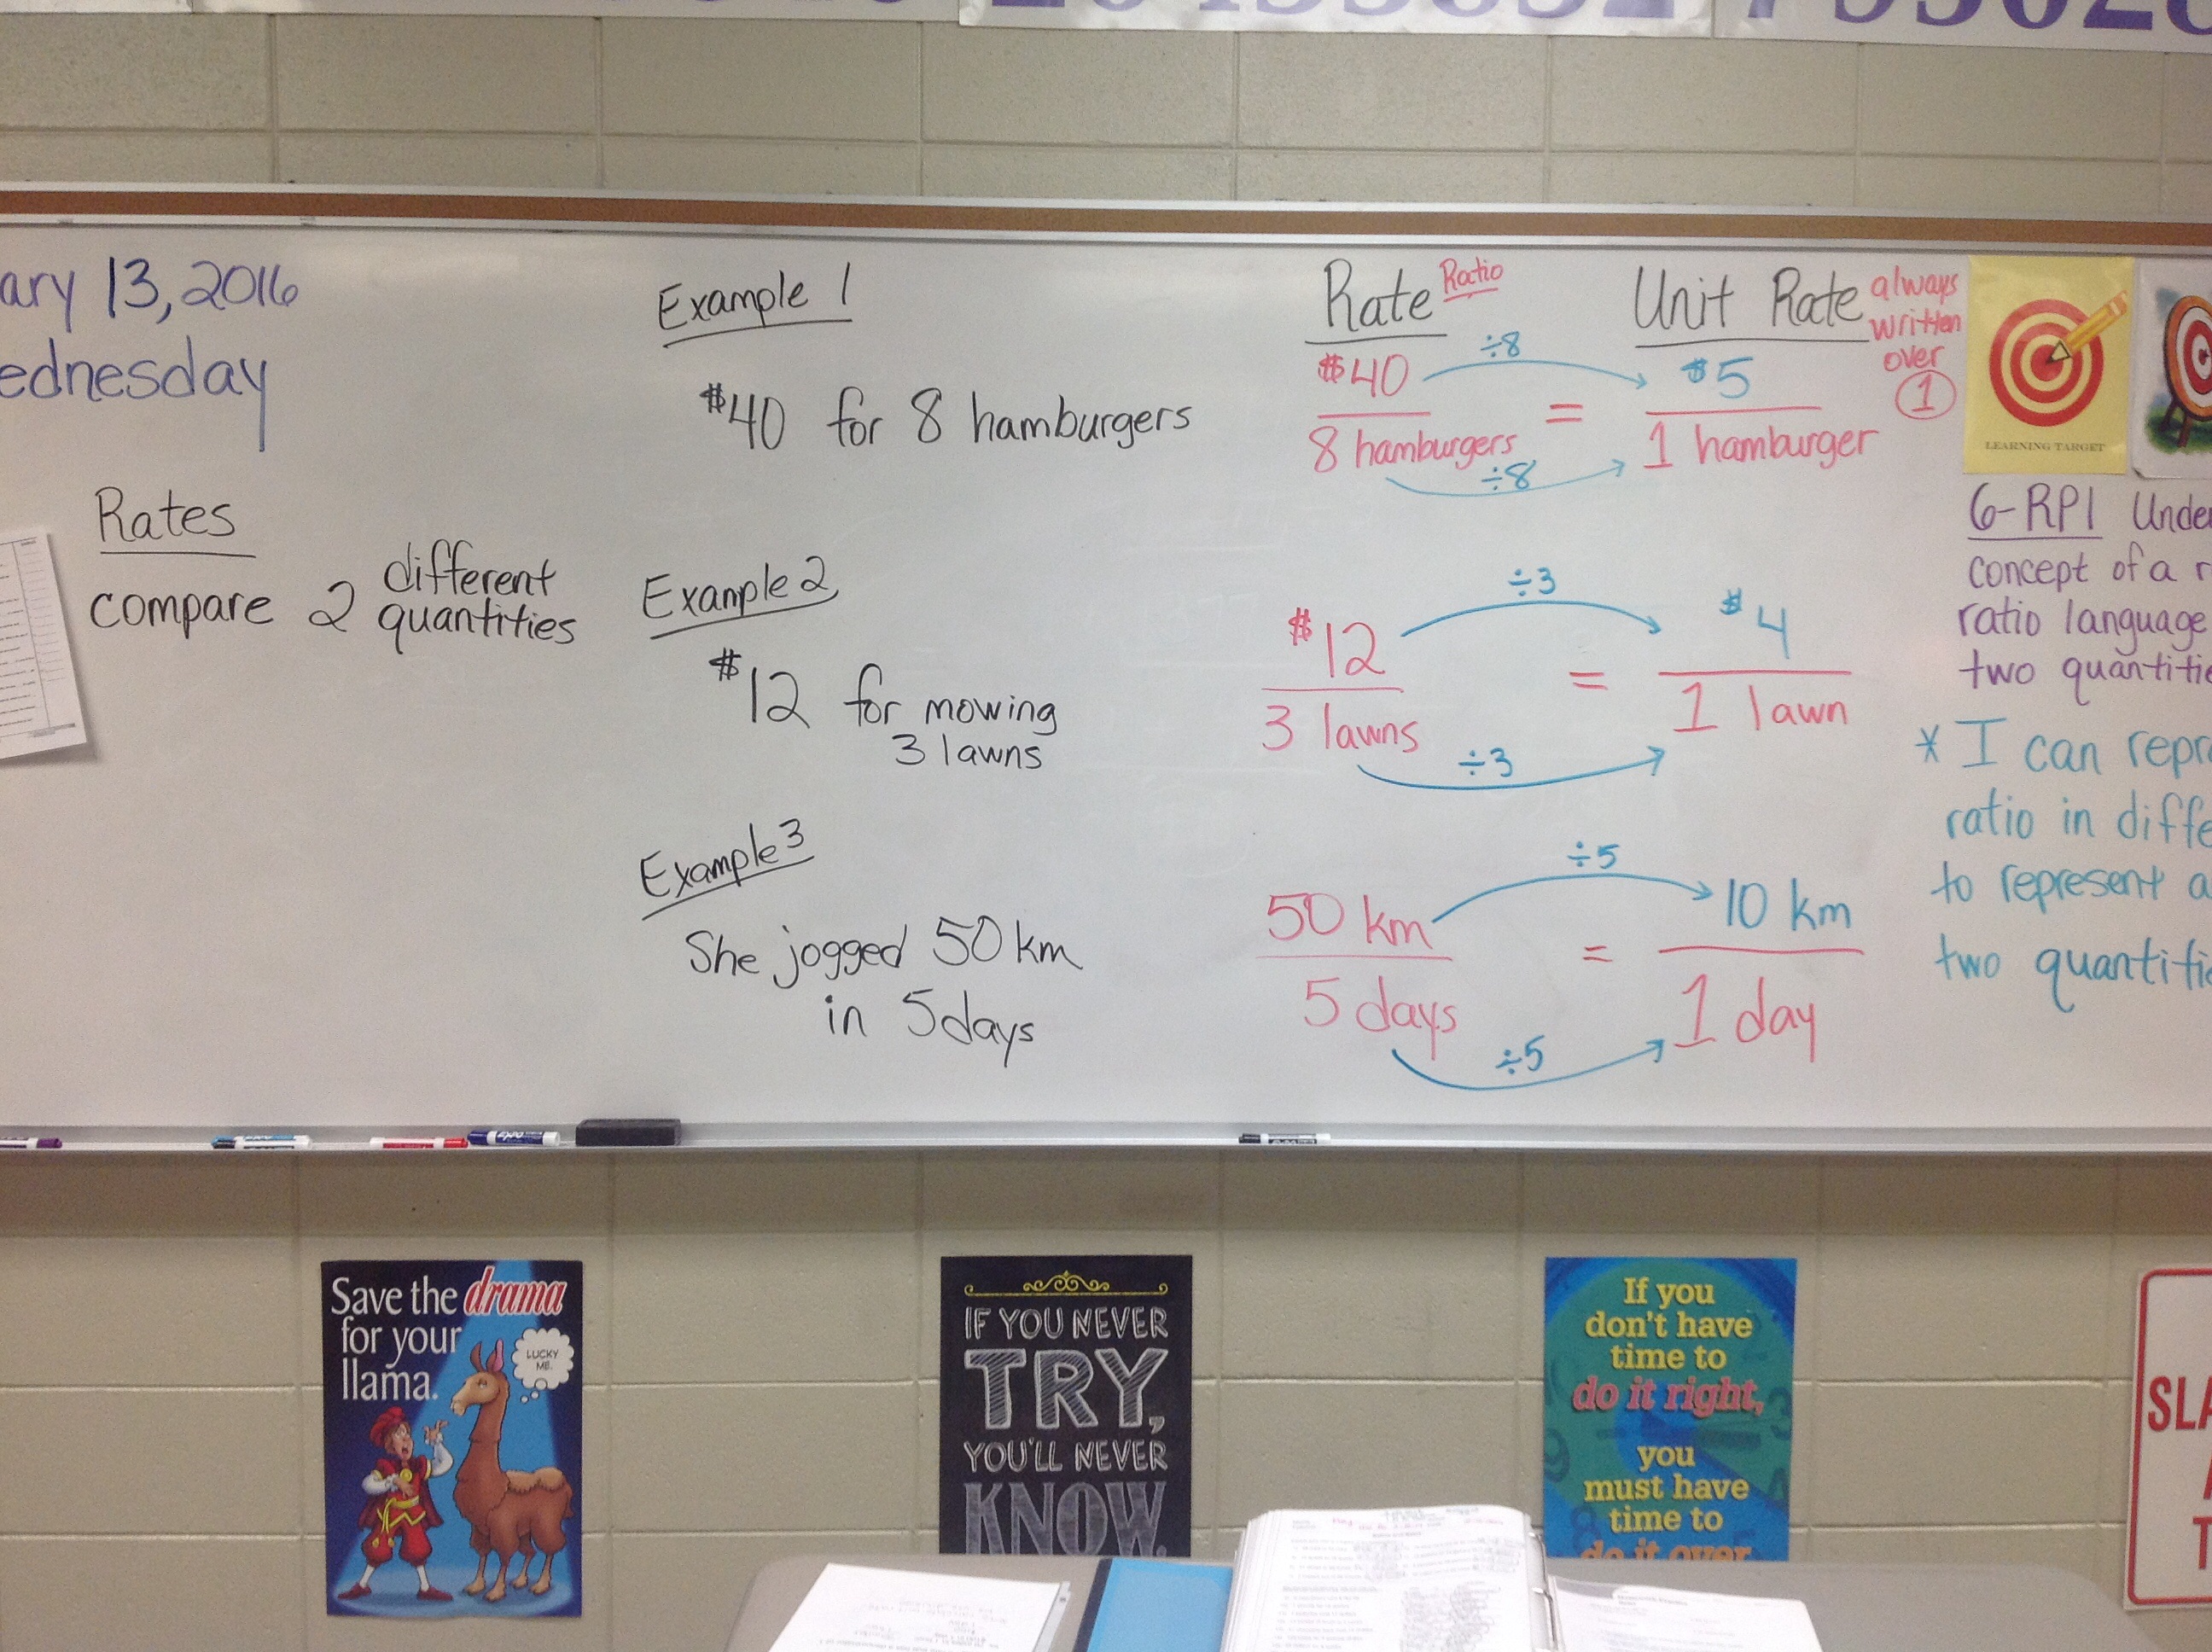 ary 13, 2016
ednesday
Rates
compare 2 different
quantities
Example 1
$40 for 8 hamburgers
Example 2
$12 for mowing
3 lawns
Example 3
She jogged 50 km
in 5 days
Rate Ratio
Unit Rate always
written
over
1
$40 ÷8 $5
=
8 hamburgers ÷8 1 hamburger
÷3
$12 $4
=
3 lawns 1 lawn
÷3
÷5
50 km 10 km
=
5 days 1 day
÷5
LEARNING TARGET
6-RP1 Unde
concept of a r
ratio language
two quantitie
* I can repr
ratio in diffe
to represent a
two quantitie
Save the drama
for your
llama.
LUCKY
ME.
IF YOU NEVER
TRY,
YOU'LL NEVER
KNOW.
If you
don't have
time to
do it right,
you
must have
time to
do it over
SLA
A
T